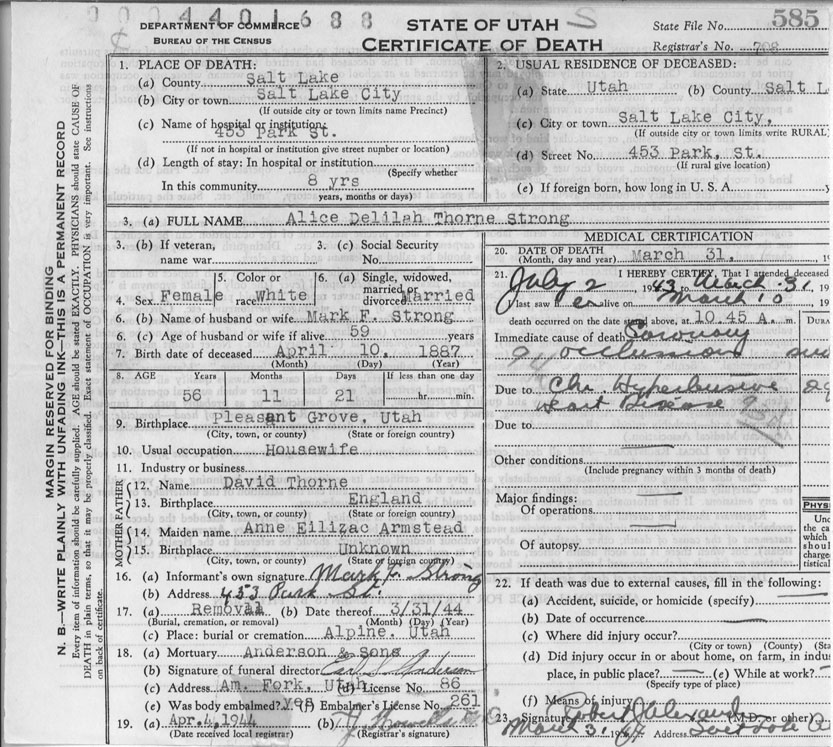 0004401688
DEPARTMENT OF COMMERCE
BUREAU OF THE CENSUS
STATE OF UTAH S
CERTIFICATE OF DEATH
State File No. 585
Registrar's No. 708
MARGIN RESERVED FOR BINDING
N. B.—WRITE PLAINLY WITH UNFADING INK—THIS IS A PERMANENT RECORD
Every item of information should be carefully supplied. AGE should be stated EXACTLY. PHYSICIANS should state CAUSE OF
DEATH in plain terms, so that it may be properly classified. Exact statement of OCCUPATION is very important. See instructions
on back of certificate.
1. PLACE OF DEATH:
(a) County Salt Lake
(b) City or town Salt Lake City
(If outside city or town limits name Precinct)
(c) Name of hospital or institution:
453 Park St.
(If not in hospital or institution give street number or location)
(d) Length of stay: In hospital or institution
(Specify whether
In this community 8 yrs
years, months or days)
2. USUAL RESIDENCE OF DECEASED:
(a) State Utah (b) County Salt L
(c) City or town Salt Lake City,
(If outside city or town limits write RURAL)
(d) Street No. 453 Park, St.
(If rural give location)
(e) If foreign born, how long in U. S. A. y
3. (a) FULL NAME Alice Delilah Thorne Strong
3. (b) If veteran,
name war
3. (c) Social Security
No.
4. Sex Female
5. Color or
race White
6. (a) Single, widowed,
married or
divorced Married
6. (b) Name of husband or wife Mark F. Strong
6. (c) Age of husband or wife if alive 59 years
7. Birth date of deceased April 10, 1887
(Month) (Day) (Year)
8. AGE Years Months Days If less than one day
56 11 21 hr. min.
9. Birthplace Pleasant Grove, Utah
(City, town, or county) (State or foreign country)
10. Usual occupation Housewife
11. Industry or business
FATHER
12. Name David Thorne
13. Birthplace England
(City, town, or county) (State or foreign country)
MOTHER
14. Maiden name Anne Eilizac Armstead
15. Birthplace Unknown
(City, town, or county) (State or foreign country)
16. (a) Informant's own signature Mark F. Strong
(b) Address 453 Park St.
17. (a) Removal (b) Date thereof 3/31/44
(Burial, cremation, or removal) (Month) (Day) (Year)
(c) Place: burial or cremation Alpine. Utah
18. (a) Mortuary Anderson & Sons
(b) Signature of funeral director Earl S. Anderson
(c) Address Am. Fork, Utah (d) License No. 86
(e) Was body embalmed? Yes Embalmer's License No. 261
19. (a) Apr. 4, 1944 (b)
(Date received local registrar) (Registrar's signature)
MEDICAL CERTIFICATION
20. DATE OF DEATH
(Month, day and year) March 31, 19
21. I HEREBY CERTIFY, That I attended deceased
July 2 1943 to March 31 19
last saw er alive on March 10
death occurred on the date stated above, at 10.45 A. m. DURA
Immediate cause of death Coronary
94A occlusion
Due to Chr. Hypertensive
Heart Disease
Due to
Other conditions
(Include pregnancy within 3 months of death)
Major findings:
Of operations
Of autopsy
PHYS
Unc
the ca
which
shoul
charge
tistica
22. If death was due to external causes, fill in the following:
(a) Accident, suicide, or homicide (specify)
(b) Date of occurrence
(c) Where did injury occur?
(City or town) (County)
(d) Did injury occur in or about home, on farm, in indu
place, in public place? (e) While at work?
(Specify type of place)
(f) Means of injury
23. Signature Alexander
(M.D. or other)
March 31, 1944 Address